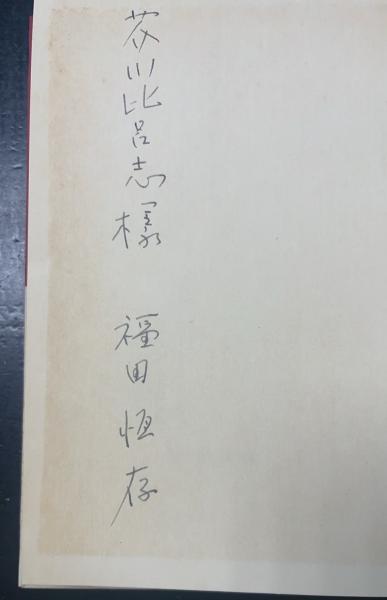 芥川比呂志様 福田恆存